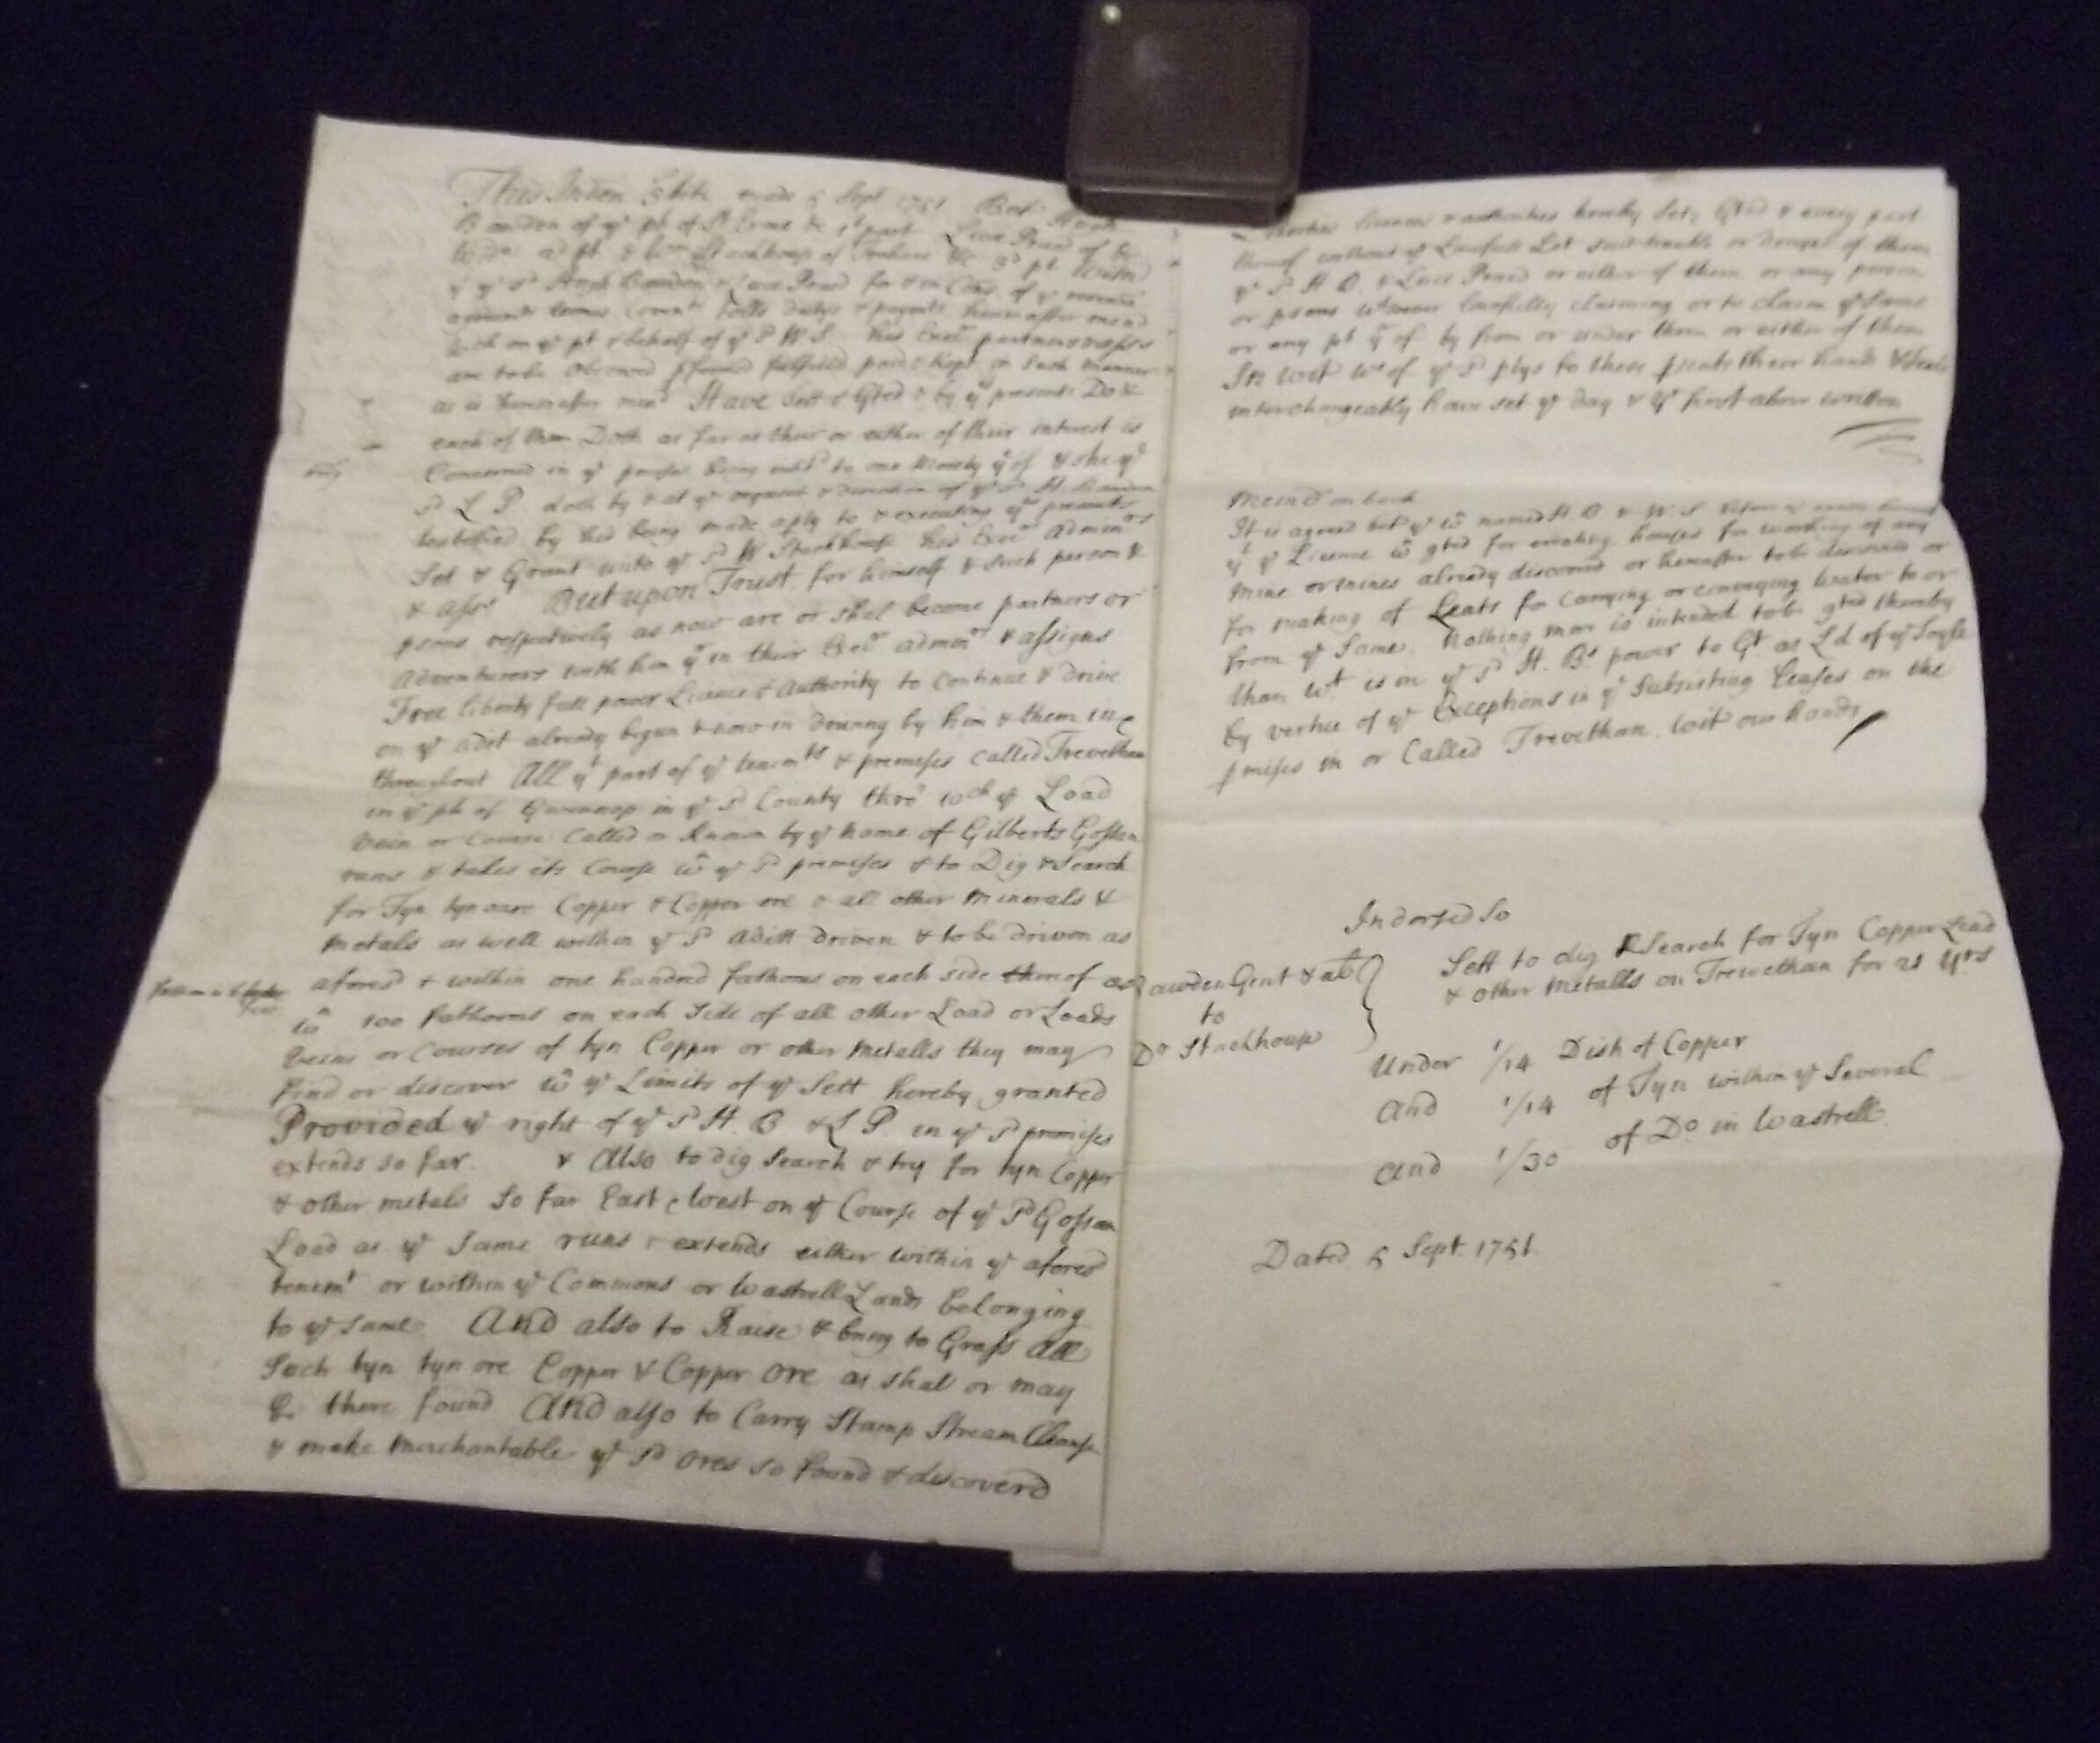 This Inden 3 ptite made 5 Sept. 1751 Bet. Hugh
Bawden of yͤ ph of St Erme &c 1st part Luce Praed of &c
Wido 2d pt & Wm Stackhouse of Trehane &c 3d pt Witn
yt yͤ sd Hugh Bawden & Luce Praed for & in Cons. of yͤ
Covents Tolls dutys & paymts hereinafter mend
wch on yͤ pt & behalf of yͤ sd W S. his Execrs partners & assigns
are to be observed pformed fulfilled paid & kept in such manner
as is hereinafter mend Have Sett & Gted & by ys presents Do &
each of them Doth as far as their or either of their interest is
Concerned in yͤ pmises being to one Moiety yrof & she yͤ
sd L P. doth by & at yͤ request & direction of yͤ sd H. Bawden
testified by his being made apty to & executing ys presents
Set & Grant unto yͤ sd W Stackhouse his Execrs Adminrs
& assns But upon Trust for himself & such person &
psons respectively as now are or shal become partners or
Adventurers with him yrin their Execrs adminrs & assigns
Free liberty full power Licence & Authority to Continue & drive
on yͤ adit already begun & now in driving by him & them in &
throughout All yt part of yͤ tenemts & premises called Trevethan
in yͤ ph of Gwennap in yͤ sd County thro' wch yͤ Load
Vein or Course Called or Known by yͤ name of Gilberts Gossan
runs & takes its Course wn yͤ sd premises & to Dig & Search
for Tyn tyn oare Copper & Copper ore & all other Minerals &
Metals as well within yͤ sd aditt driven & to be driven as
aforesd & within one hundred fathoms on each side thereof as
wn 100 Fathoms on each Side of all other Load or Loads
Veins or Courses of tyn Copper or other Metalls they may
find or discover wn yͤ Limits of yͤ Sett hereby granted
Provided yͤ right of yͤ sd H. B. & L P. in yͤ sd premises
extends so far. & Also to dig Search & try for tyn Copper
& other metals So far East & West on yͤ Course of yͤ sd Gossan
Load as yͤ Same runs & extends either within yͤ aforesd
tenemt or within yͤ Commons or Wastrell Lands belonging
to yͤ same And also to Raise & bring to Grass All
Such tyn tyn ore Copper & Copper Ore as shal or may
be there found And also to Carry Stamp Stream Cleanse
& make Merchantable yͤ sd Ores so found & discoverd
licence & authorities hereby Set, Gted & every part
thereof without yͤ Lawfull Let suit trouble or denyal of them
yͤ sd H. B. & Luce Praed or either of them or any person
or psons wtsoever lawfully claiming or to claim yͤ same
or any pt yrof by from or under them or either of them
In wit wrof yͤ sd ptys to these psents their hands & Seals
interchangeably have set yͤ day & yr first above written
Memd on back
It is agreed bet yͤ wn named H. B & W. S.
yt yͤ Licence wn gted for erecting houses for working of any
Mine or mines already discoverd or hereafter to be discoverd or
for making of Leats for Carrying or conveying Water to or
from yͤ Same. Nothing more is intended to be gted thereby
than wt is in yͤ sd H. Bs power to Gt as Ld of yͤ Soyle
by vertue of yͤ Exceptions in yͤ Subsisting Leases on the
pmises in or Called Trevethan. Wit our hands
Indorsed So
Bawden Gent & al
to
Do Stackhouse
Sett to dig & Search for Tyn Copper Lead
& other Metalls on Trevethan for 21 yrs
Under 1/14 Dish of Copper
And 1/14 of Tyn within yͤ Several
And 1/30 of Do in Wastrell.
Dated 5 Sept. 1751.